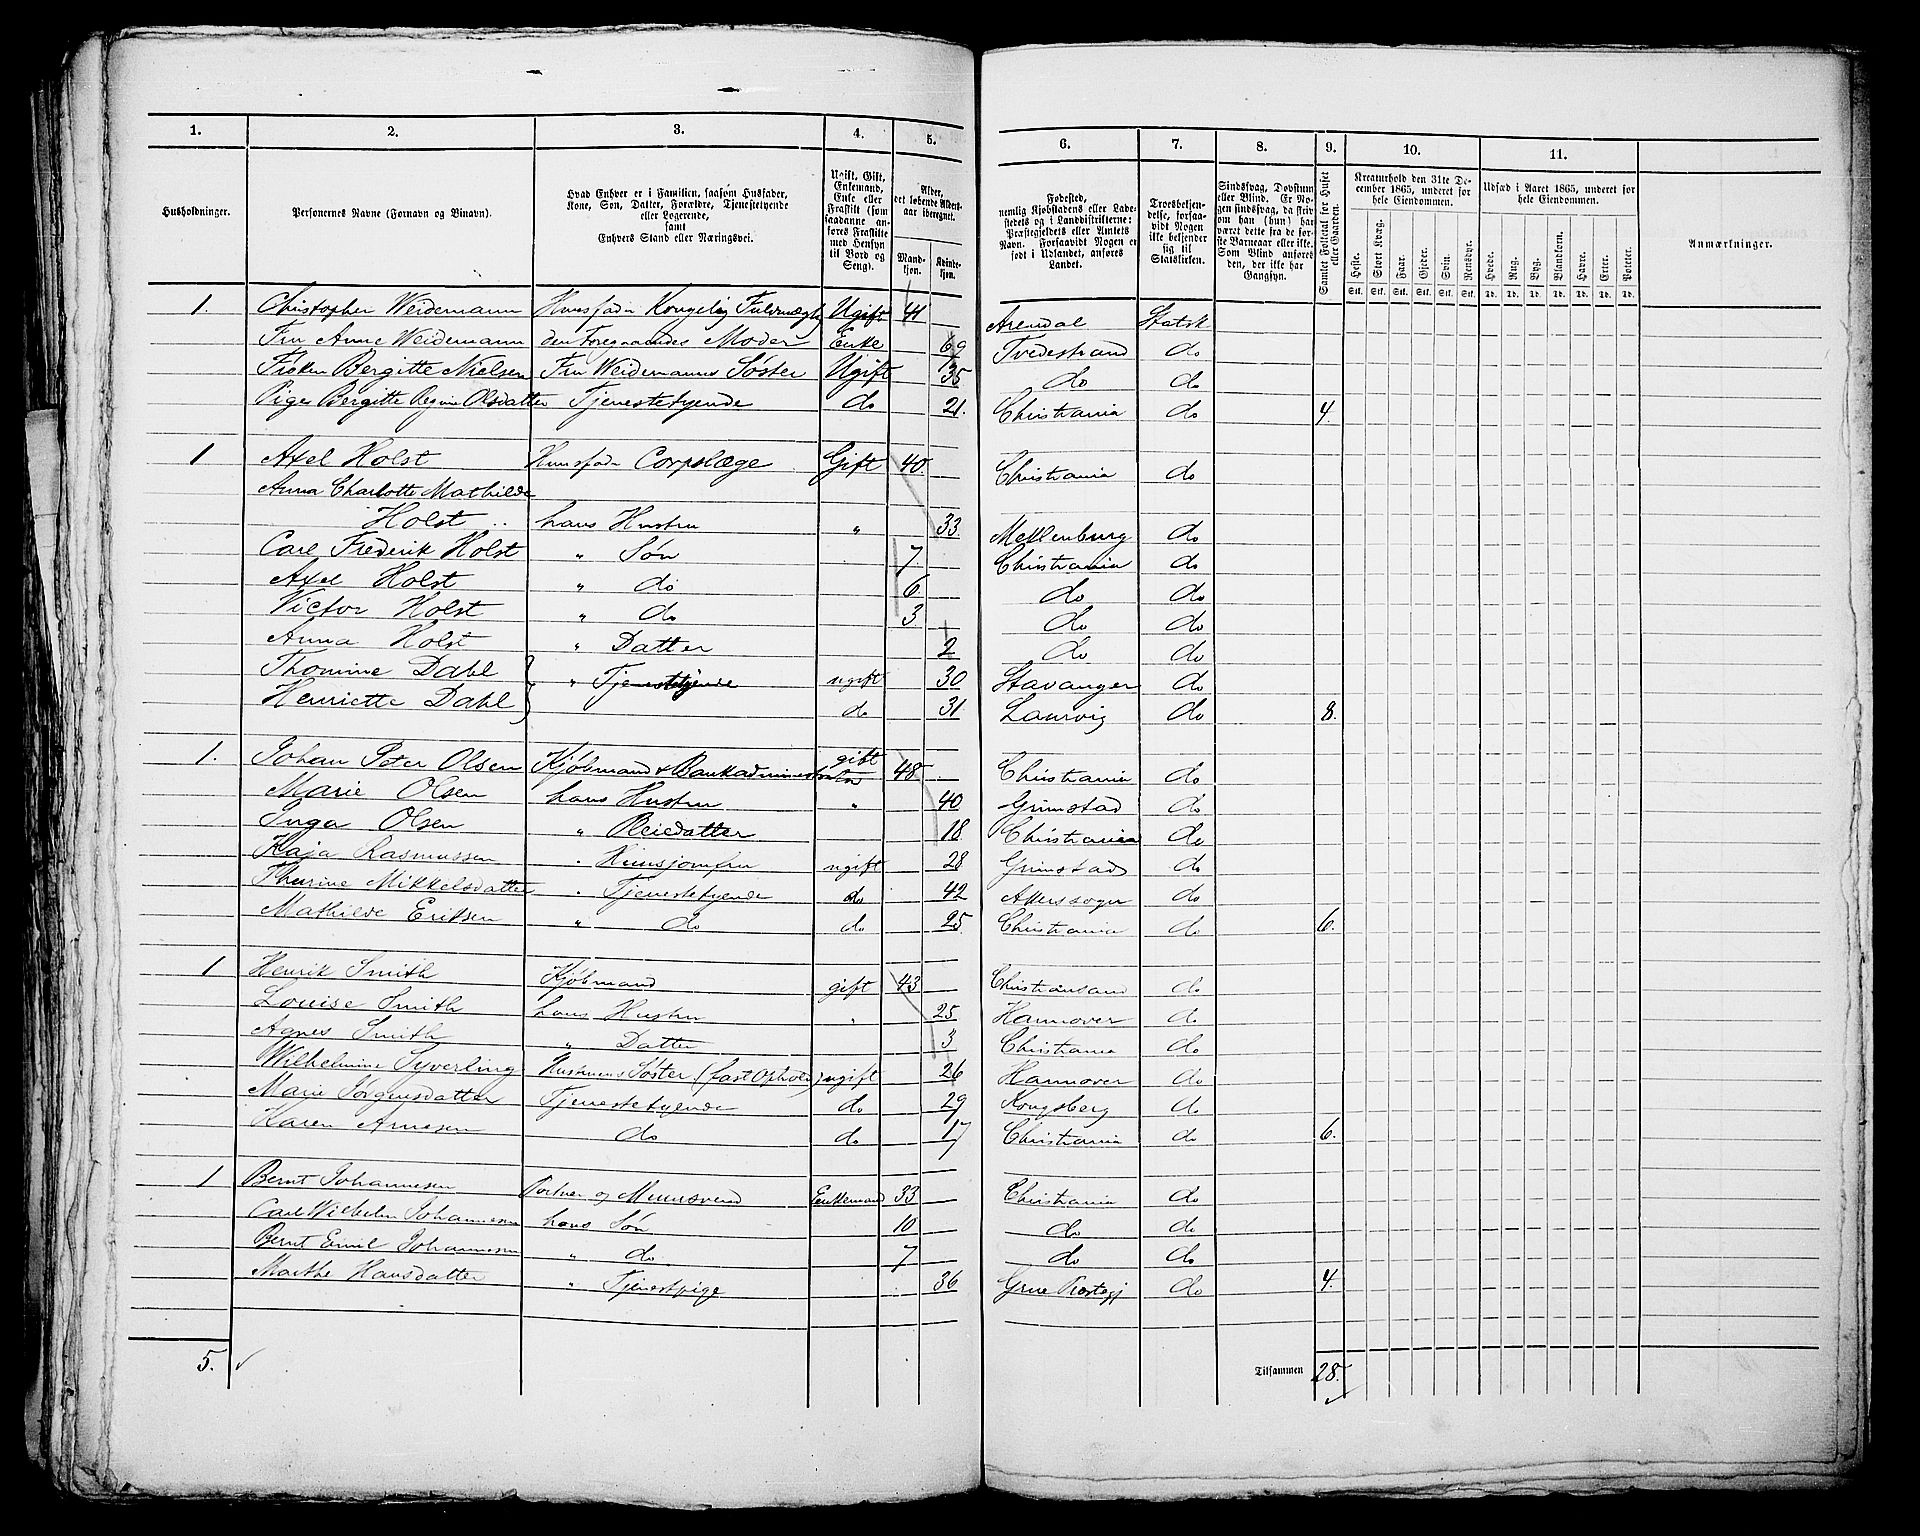 1. 2. 3. 4. 5. 6. 7. 8. 9. 10. 11.
Husholdninger.
Personernes Navne (Fornavn og Binavn).
Hvad Enhver er i Familien, saasom Husfader,
Kone, Søn, Datter, Forældre, Tjenestetyende
eller Logerende,
samt
Enhvers Stand eller Næringsvei.
Ugift, Gift,
Enkemand,
Enke eller
Fraskilt (som
saadanne an-
føres Fraskilte
med Hensyn
til Bord og
Seng).
Alder,
det løbende Alders-
aar iberegnet.
Mand-
kjøn.
Kvinde-
kjøn.
Fødested,
nemlig Kjøbstadens eller Lade-
stedets og i Landdistrikterne:
Præstegjeldets eller Amtets
Navn. Forsaavidt Nogen er
født i Udlandet, anføres
Landet.
Troesbekjen-
delse, forsaa-
vidt Nogen
ikke bekjender
sig til
Statskirken.
Sindssvag, Døvstum
eller Blind. Er No-
gen sindssvag, da skriv
om han (hun) har
været dette fra de før-
ste Barneaar eller ikke.
Som Blind anføres
den, der ikke har
Gangsyn.
Samlet Folketal for Huset
eller Gaarden.
Kreaturhold den 31te De-
cember 1865, underet for
hele Eiendommen.
Heste. Stort Kvæg. Faar. Gjeter. Svin. Rensdyr.
Stk. Stk. Stk. Stk. Stk. Stk.
Udsæd i Aaret 1865, underet for
hele Eiendommen.
Hvede. Rug. Byg. Blandkorn. Havre. Erter. Poteter.
Td. Td. Td. Td. Td. Td. Td.
Anmærkninger.
1. Christopher Weidemann Huusfader Kongelig Fuldmægtig Ugift 41 Arendal Statsk
Fru Anne Weidemann den Foregaaendes Moder Enke 69 Tvedestrand do
Frøken Bergitte Nielsen Fru Weidemanns Søster Ugift 35 do do
Pige Bergitte Regine Olsdatter Tjenestetyende do 21. Christiania do 4.
1 Axel Holst Huusfader Corpslæge Gift 40. Christiania do
Anna Charlotte Mathilde
Holst hans Hustru " 33 Meklenburg do
Carl Frederik Holst " Søn 7 Christiania do
Axel Holst " do 6 do do
Victor Holst " do 3 do do
Anna Holst " Datter 2 do do
Thomine Dahl " Tjenestetyende ugift 30 Stavanger do
Henriette Dahl do 31 Laurvig do 8.
1. Johan Peter Olsen Kjøbmand & Bankadministrator gift 48 Christiania do
Marie Olsen hans Hustru " 40 Grimstad do
Inga Olsen " Pleiedatter 18 Christiania do
Kaja Rasmussen " Huusjomfru ugift 28 Grimstad do
Thurine Mikkelsdatter " Tjenestetyende do 42 Akerssogn do
Mathilde Eriksen " do do 25 Christiania do 6.
1 Henrik Smith Kjøbmand gift 43 Christiansand do
Louise Smith hans Hustru " 25 Hannover do
Agnes Smith " Datter 3 Christiania do
Wilhelmine Syverling Hustruens Søster (fast Ophold) ugift 26 Hannover do
Marie Jørgensdatter Tjenestetyende do 29 Kongsberg do
Karen Arnesen do do 17 Christiania do 6.
1 Bernt Johannesen Portner og Muursvend Enkemand 33 Christiania do
Carl Wilhelm Johannesen hans Søn 10 do do
Bernt Emil Johannesen " do 7 do do
Marthe Hansdatter " Tjenestpige 36 Grue Prestegj do 4.
5. Tilsammen 28.